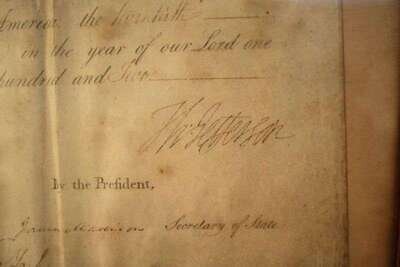 America, the
in the year of our Lord one
hundred and Two
Th: Jefferson
by the President,
James Madison Secretary of State